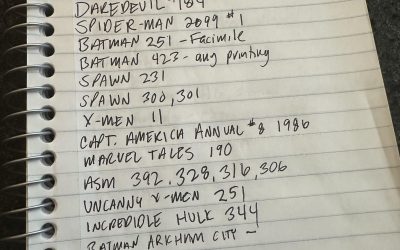 DAREDEVIL #184
SPIDER-MAN 2099 #1
BATMAN 251 - Facimile
BATMAN 423 - any printing
SPAWN 231
SPAWN 300, 301
X-MEN 11
CAPT. AMERICA ANNUAL #8 1986
MARVEL TALES 190
ASM 392, 328, 316, 306
UNCANNY X-MEN 251
INCREDIBLE HULK 344
BATMAN ARKHAM CITY -